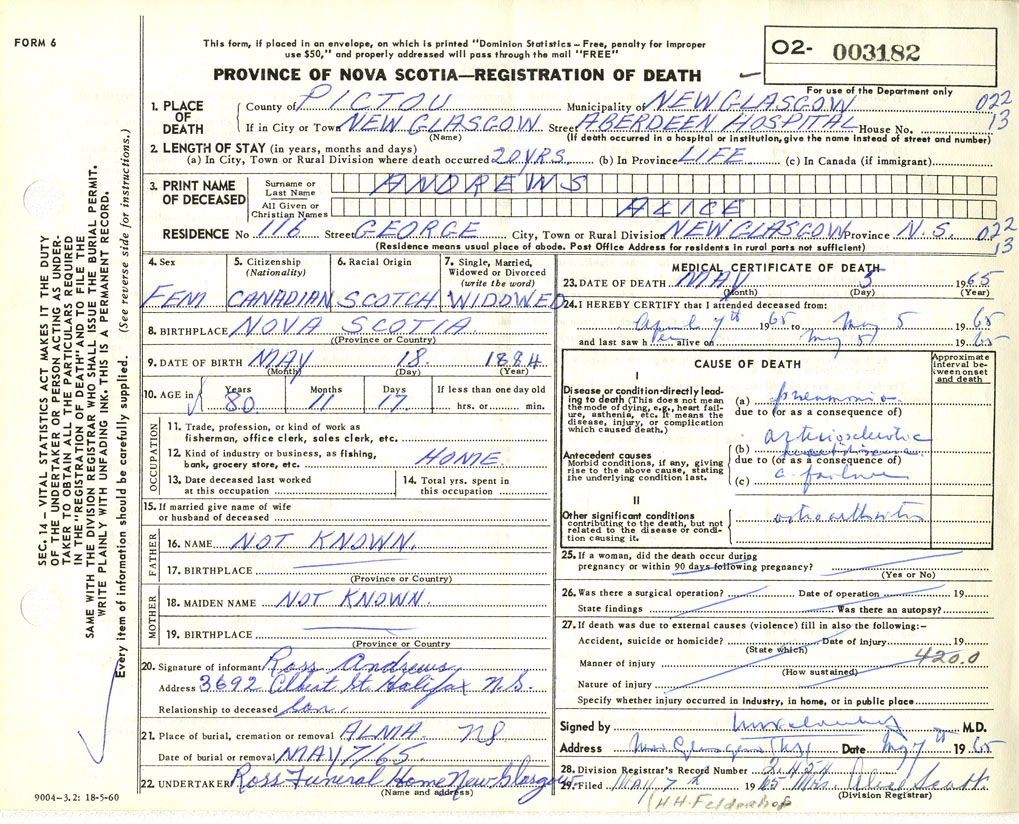 FORM 6
This form, if placed in an envelope, on which is printed "Dominion Statistics – Free, penalty for improper
use $50," and properly addressed will pass through the mail "FREE"
O2- 003182
PROVINCE OF NOVA SCOTIA—REGISTRATION OF DEATH
For use of the Department only
1. PLACE OF DEATH
County of PICTOU Municipality of NEW GLASGOW 022
If in City or Town NEW GLASGOW Street ABERDEEN HOSPITAL House No. 13
(Name) (If death occurred in a hospital or institution, give the name instead of street and number)
2. LENGTH OF STAY (in years, months and days)
(a) In City, Town or Rural Division where death occurred 20 YRS. (b) In Province LIFE (c) In Canada (if immigrant)
3. PRINT NAME OF DECEASED
Surname or Last Name ANDREWS
All Given or Christian Names ALICE
RESIDENCE No 116 Street GEORGE City, Town or Rural Division NEW GLASGOW Province N.S. 022
(Residence means usual place of abode. Post Office Address for residents in rural parts not sufficient) 13
4. Sex FEM
5. Citizenship (Nationality) CANADIAN
6. Racial Origin SCOTCH
7. Single, Married, Widowed or Divorced (write the word) WIDOWED
8. BIRTHPLACE NOVA SCOTIA
(Province or Country)
9. DATE OF BIRTH MAY 18 1884
(Month) (Day) (Year)
10. AGE in Years 80 Months 11 Days 17 If less than one day old
hrs. or min.
OCCUPATION
11. Trade, profession, or kind of work as
fisherman, office clerk, sales clerk, etc.
12. Kind of industry or business, as fishing,
bank, grocery store, etc. HOME.
13. Date deceased last worked
at this occupation
14. Total yrs. spent in
this occupation
15. If married give name of wife
or husband of deceased
FATHER
16. NAME NOT KNOWN.
17. BIRTHPLACE
(Province or Country)
MOTHER
18. MAIDEN NAME NOT KNOWN.
19. BIRTHPLACE
(Province or Country
20. Signature of informant Ross Andrews,
Address 3692 Albert St. Halifax N.S.
Relationship to deceased Son.
21. Place of burial, cremation or removal ALMA. NS
Date of burial or removal MAY 7/65
22. UNDERTAKER Ross Funeral Home New Glasgow
(Name and address)
MEDICAL CERTIFICATE OF DEATH
23. DATE OF DEATH MAY 5 1965
(Month) (Day) (Year)
24. I HEREBY CERTIFY that I attended deceased from:
April 7th 1965 to May 5 1965
and last saw her alive on May 5 1965
CAUSE OF DEATH
Approximate interval between onset and death
I
Disease or condition directly leading to death (This does not mean
the mode of dying, e.g., heart failure, asthenia, etc. It means the
disease, injury, or complication
which caused death.)
(a) pneumonia
due to (or as a consequence of)
arteriosclerotic
Antecedent causes
Morbid conditions, if any, giving
rise to the above cause, stating
the underlying condition last.
(b)
due to (or as a consequence of)
(c) c. failure
II
Other significant conditions
contributing to the death, but not
related to the disease or condition causing it.
osteoarthritis
25. If a woman, did the death occur during
pregnancy or within 90 days following pregnancy?
(Yes or No)
26. Was there a surgical operation? Date of operation 19
State findings Was there an autopsy?
27. If death was due to external causes (violence) fill in also the following:–
Accident, suicide or homicide? Date of injury 19
(State which) 420.0
Manner of injury
(How sustained)
Nature of injury
Specify whether injury occurred in industry, in home, or in public place
Signed by M.D.
Address New Glasgow Date May 7th 1965
28. Division Registrar's Record Number 2,454
29. Filed MAY 7th 1965 Mrs. Alice Scott
(Division Registrar)
(H.H. Feldenhof
SEC. 14 – VITAL STATISTICS ACT MAKES IT THE DUTY
OF THE UNDERTAKER OR PERSON ACTING AS UNDERTAKER TO OBTAIN ALL THE PARTICULARS REQUIRED
IN THE "REGISTRATION OF DEATH" AND TO FILE THE
SAME WITH THE DIVISION REGISTRAR WHO SHALL ISSUE THE BURIAL PERMIT.
WRITE PLAINLY WITH UNFADING INK. THIS IS A PERMANENT RECORD.
Every item of information should be carefully supplied. (See reverse side for instructions.)
9004-3.2: 18-5-60